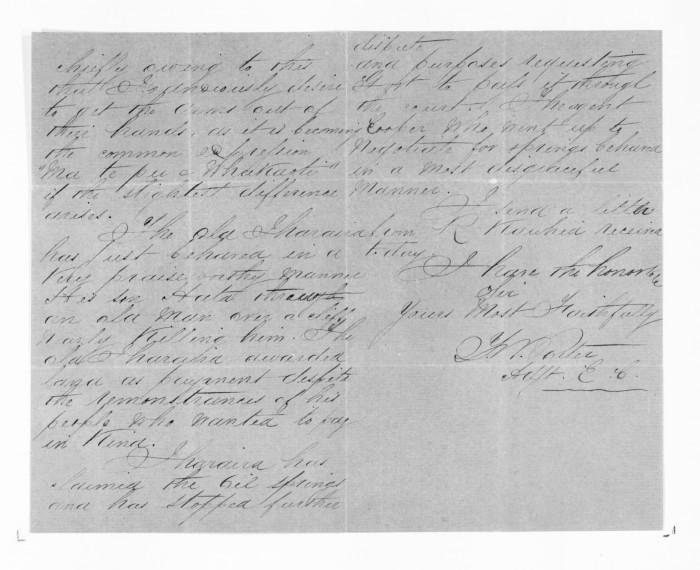 chiefly owing to this
that I so
desire
to get the arms out of
their hands, as it is becoming
the common expression
"Ma te pu e Whakaoti"
if the slightest difference
arises.
The old Iharaira
has just behaved in a
very praise worthy manner
His son threw
an old man over a cliff
nearly killing him. The
old Iharaira awarded
land as payment despite
the remonstrances of his
people who wanted to pay
in kind.
Iharaira has
claimed the Oil springs
and has stopped further
dispute
and purposes requesting
Govt to pass it through
the court. The agent
Cooper who went up to
negotiate for springs behaved
in a most disgraceful
manner.
I send a letter
from R received
today.
I have the honor
Sir
Yours Most Faithfully